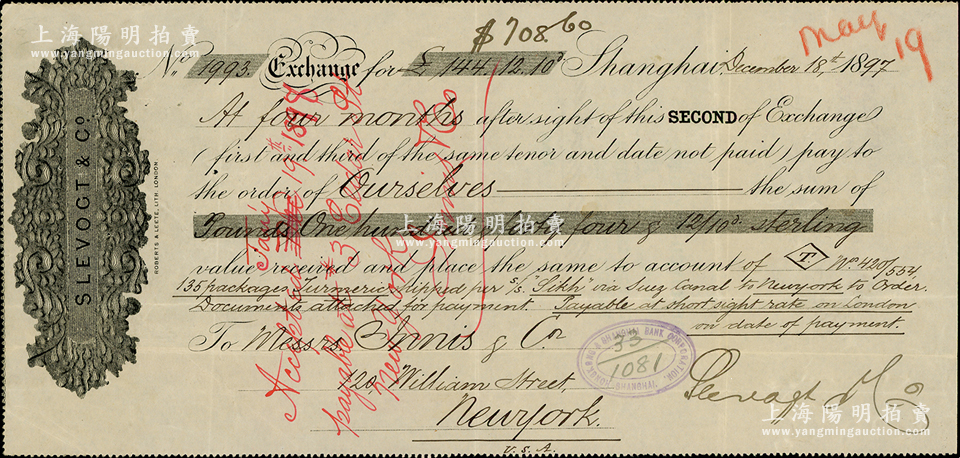 上海陽明拍賣
www.yangmingauction.com
$708.60
May 19
No 1993. Exchange for £ 144.12.10d Shanghai, December 18th 1897
At four months after sight of this SECOND of Exchange
(first and third of the same tenor and date not paid) pay to
the order of Ourselves the sum of
Pounds One hundred forty four & 12/10d sterling
value received and place the same to account of T No. 420/554
135 packages Turmeric shipped per S/S. "Sikh" via Suez Canal to New York to Order.
Documents attached for payment. Payable at short sight rate on London
on date of payment.
To Messrs & Co
120, William Street,
New York.
U.S.A.
SLEVOGT & Co
ROBERTS & LEETE, LITH. LONDON.
Accepted Jany 19th 1898
payable at # 3 Cedar St
New York
HONGKONG & SHANGHAI BANK CORPORATION,
33
1081
SHANGHAI.
Slevogt & Co
上海陽明拍賣
www.yangmingauction.com
上海陽明拍賣
www.yangmingauction.com